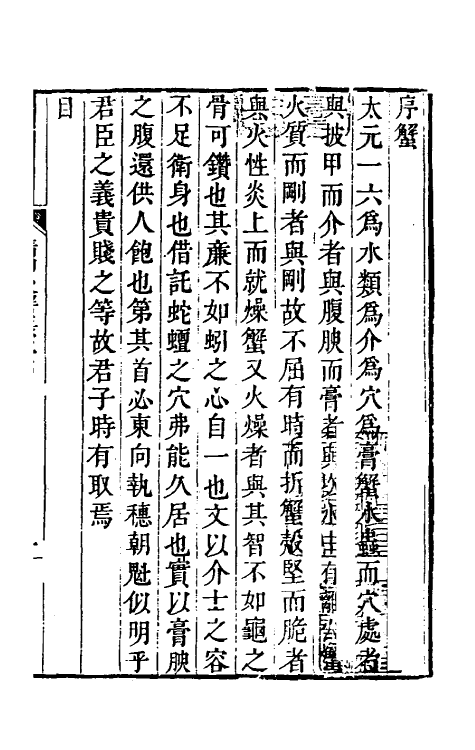 序蟹
太元一六爲水類爲介爲穴爲膏蟹水蟲而穴處者
與披甲而介者與腹腴而膏者與坎水生有離
火質而剛者與剛故不屈有時而折蟹殼堅而脆者
與火性炎上而就燥蟹又火燥者與其智不如龜之
骨可鑽也其廉不如蚓之心自一也文以介士之容
不足衛身也借託蛇蟺之穴弗能久居也實以膏腴
之腹還供人飽也第其首必東向執穗朝魁似明乎
君臣之義貴賤之等故君子時有取焉
目